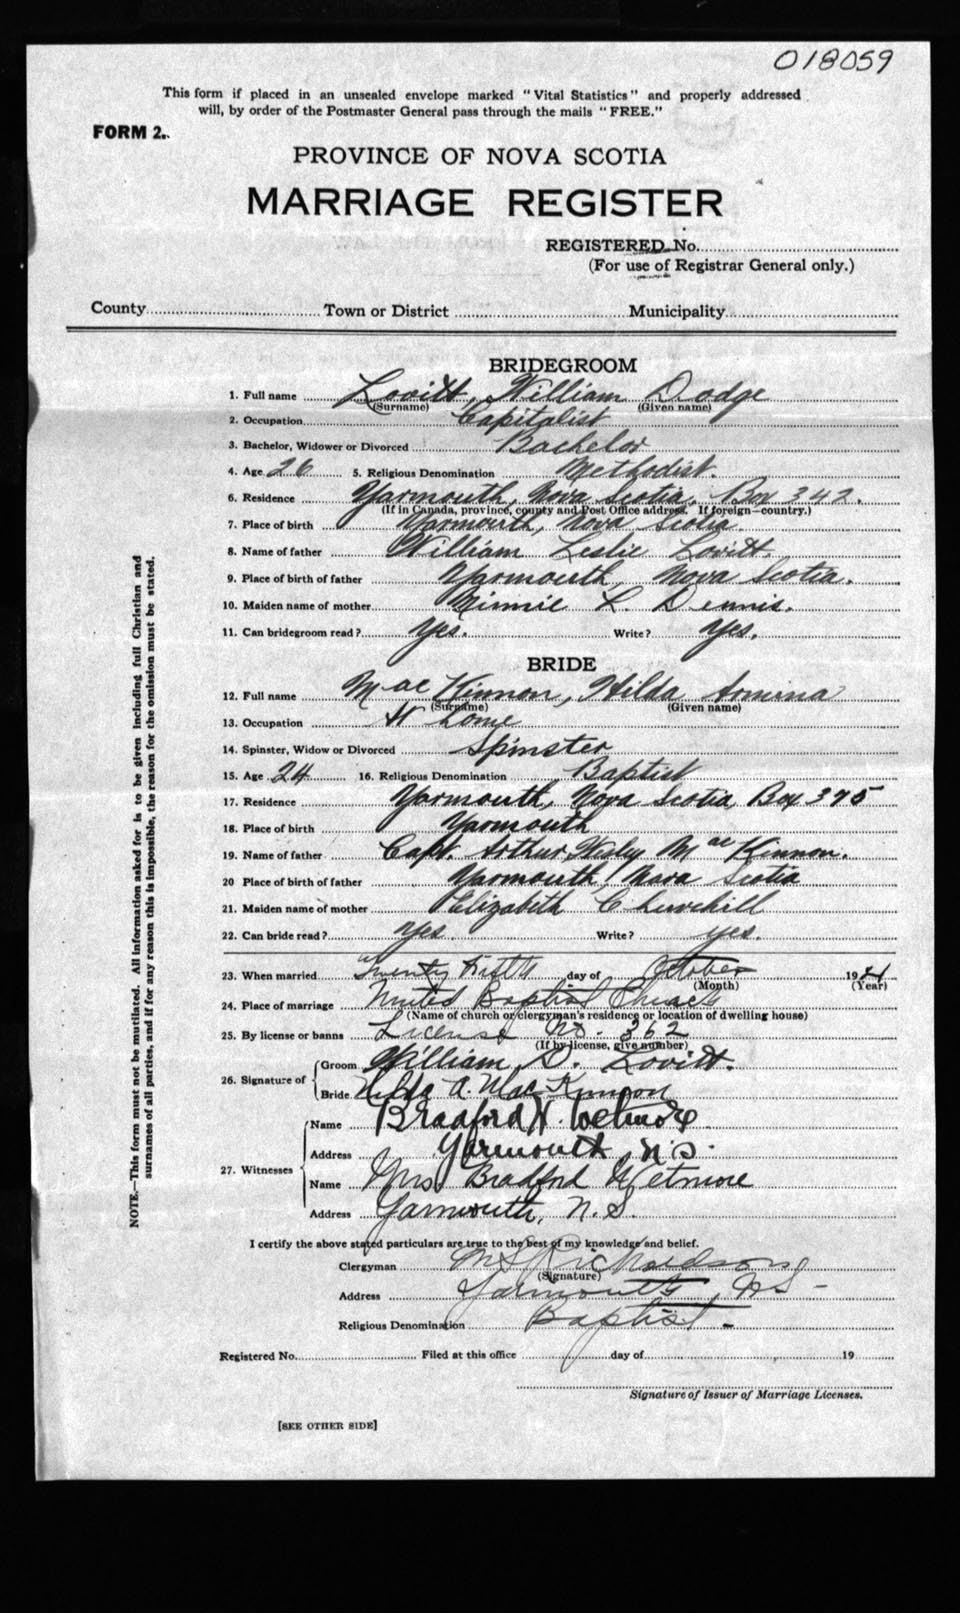 018059
This form if placed in an unsealed envelope marked "Vital Statistics" and properly addressed
will, by order of the Postmaster General pass through the mails "FREE."
FORM 2.
PROVINCE OF NOVA SCOTIA
MARRIAGE REGISTER
REGISTERED No.
(For use of Registrar General only.)
County Town or District Municipality
BRIDEGROOM
1. Full name Lovitt, William Dodge
(Surname) (Given name)
2. Occupation Capitalist
3. Bachelor, Widower or Divorced Bachelor
4. Age 26 5. Religious Denomination Methodist.
6. Residence Yarmouth, Nova Scotia. Box 342.
(If in Canada, province, county and Post Office address. If foreign—country.)
7. Place of birth Yarmouth, Nova Scotia.
8. Name of father William Leslie Lovitt.
9. Place of birth of father Yarmouth, Nova Scotia.
10. Maiden name of mother Minnie L. Dennis.
11. Can bridegroom read? Yes. Write? Yes.
BRIDE
12. Full name MacKinnon, Hilda
(Surname) (Given name)
13. Occupation At Home
14. Spinster, Widow or Divorced Spinster
15. Age 24 16. Religious Denomination Baptist
17. Residence Yarmouth, Nova Scotia, Box 375
18. Place of birth Yarmouth
19. Name of father Capt. Arthur Wesley MacKinnon.
20 Place of birth of father Yarmouth, Nova Scotia
21. Maiden name of mother Elizabeth Churchill
22. Can bride read? Yes. Write? yes.
23. When married Twenty Fifth day of October 19
(Month) (Year)
24. Place of marriage United Baptist Church
(Name of church or clergyman's residence or location of dwelling house)
25. By license or banns License No. 362
(If by license, give number)
26. Signature of Groom William D. Lovitt.
Bride Hilda A. MacKinnon
27. Witnesses Name Bradford H. Wetmore.
Address Yarmouth, N.S.
Name Mrs Bradford Wetmore
Address Yarmouth, N.S.
I certify the above stated particulars are true to the best of my knowledge and belief.
Clergyman Richardson
(Signature)
Address Yarmouth, NS-
Religious Denomination Baptist-
Registered No. Filed at this office day of 19
Signature of Issuer of Marriage Licenses.
[SEE OTHER SIDE]
NOTE.—This form must not be mutilated. All information asked for is to be given including full Christian and
surnames of all parties, and if for any reason this is impossible, the reason for the omission must be stated.